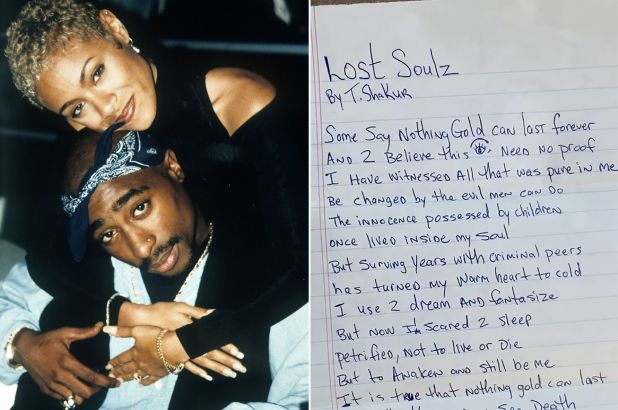 Lost Soulz
By T. Shakur
Some Say Nothing Gold can last forever
AND 2 Believe this NEED NO proof
I Have witnessed All that was pure in me
Be changed by the evil men can Do
The innocence possessed by children
once lived inside my soul
But surving Years with criminal peers
has turned my warm heart to cold
I use 2 dream AND fantasize
But now I scared 2 sleep
Petrified, not to live or Die
But to Awaken and still be me
It is true that nothing gold can last
Death